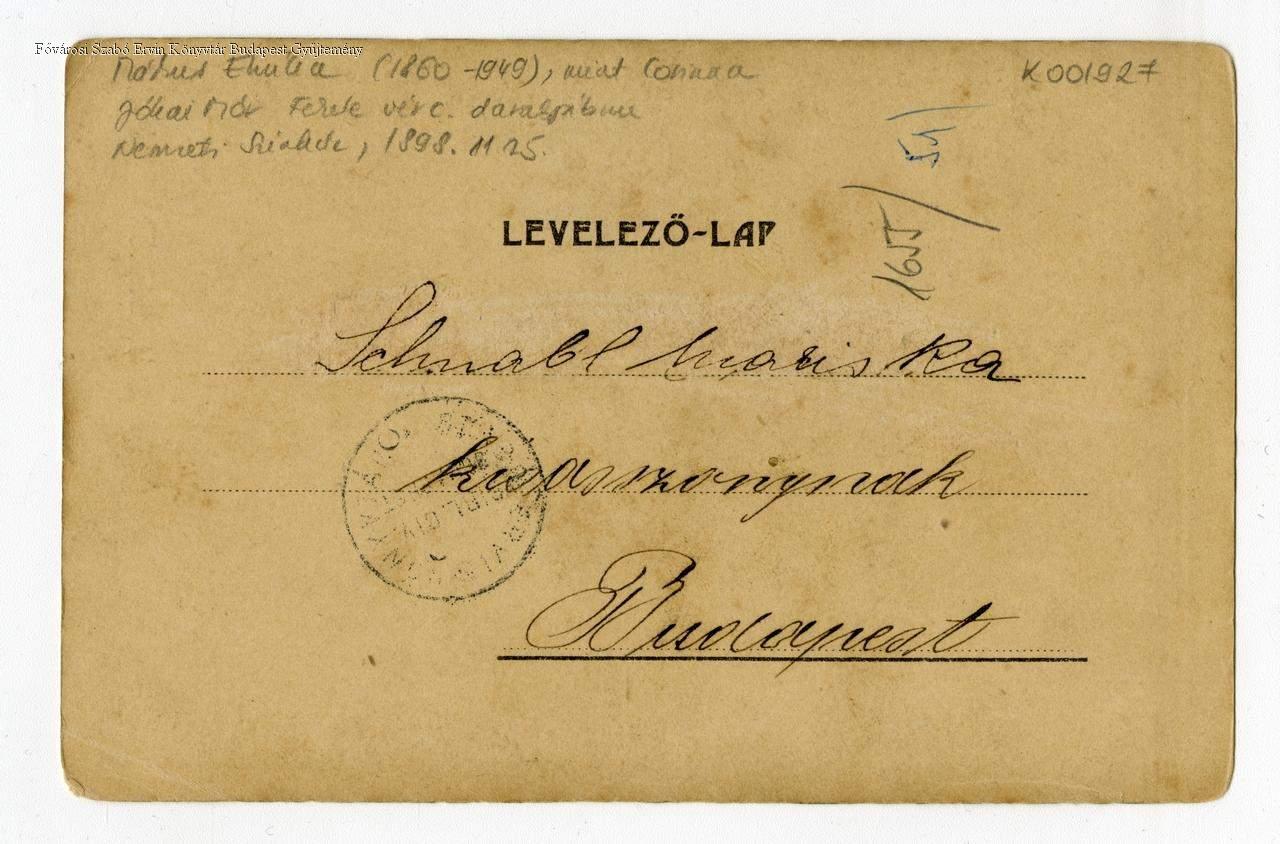 Fővárosi Szabó Ervin Könyvtár Budapest Gyűjtemény
Márkus Emília (1860-1949), mint Corinna
Jókai Mór Fekete vér c. darabjában
Nemzeti Színház, 1898. 11 25.
K001927
1655/
51
LEVELEZŐ-LAP
Schnabl Mariska
kisasszonynak
Budapest